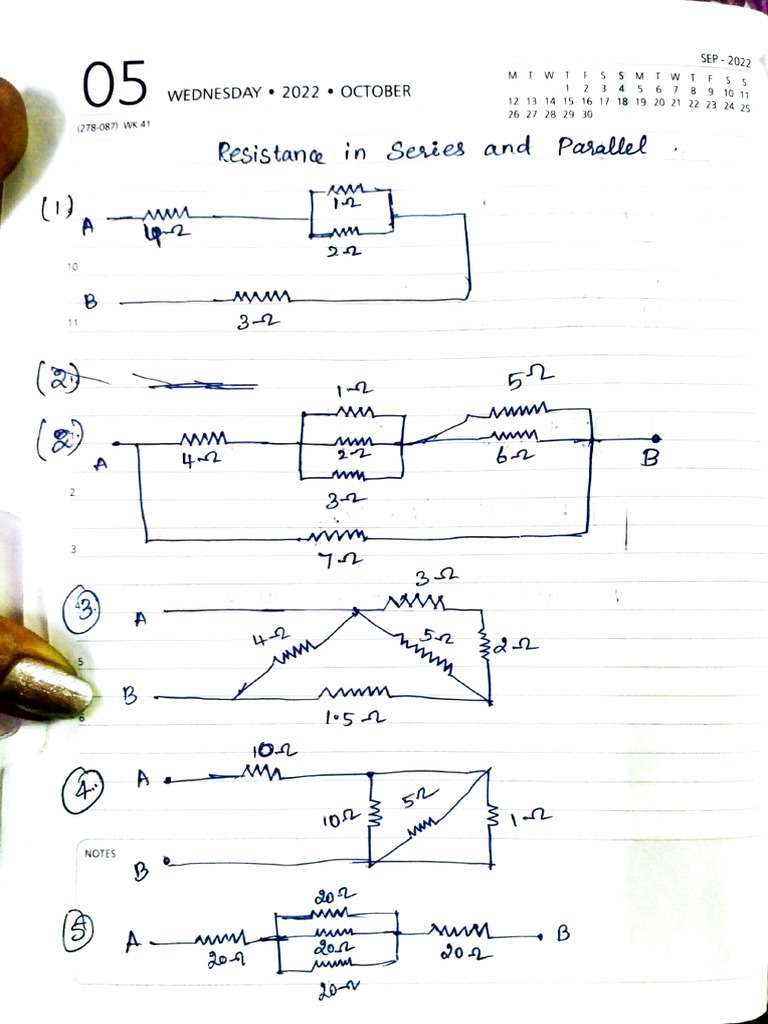 SEP - 2022
05 WEDNESDAY • 2022 • OCTOBER
(278-087) WK 41
M T W T F S S M T W T F S S
1 2 3 4 5 6 7 8 9 10 11
12 13 14 15 16 17 18 19 20 21 22 23 24 25
26 27 28 29 30
Resistance in Series and Parallel .
(1)
A
4Ω
1Ω
2Ω
10
B
3Ω
11
(2)
(2)
A
4Ω
1Ω
2Ω
3Ω
5Ω
6Ω
B
2
7Ω
3
3.
A
3Ω
4Ω
5Ω
2Ω
5
B
1.5Ω
6
4.
A
10Ω
10Ω
5Ω
1Ω
NOTES
B
5
A
20Ω
20Ω
20Ω
20Ω
20Ω
B